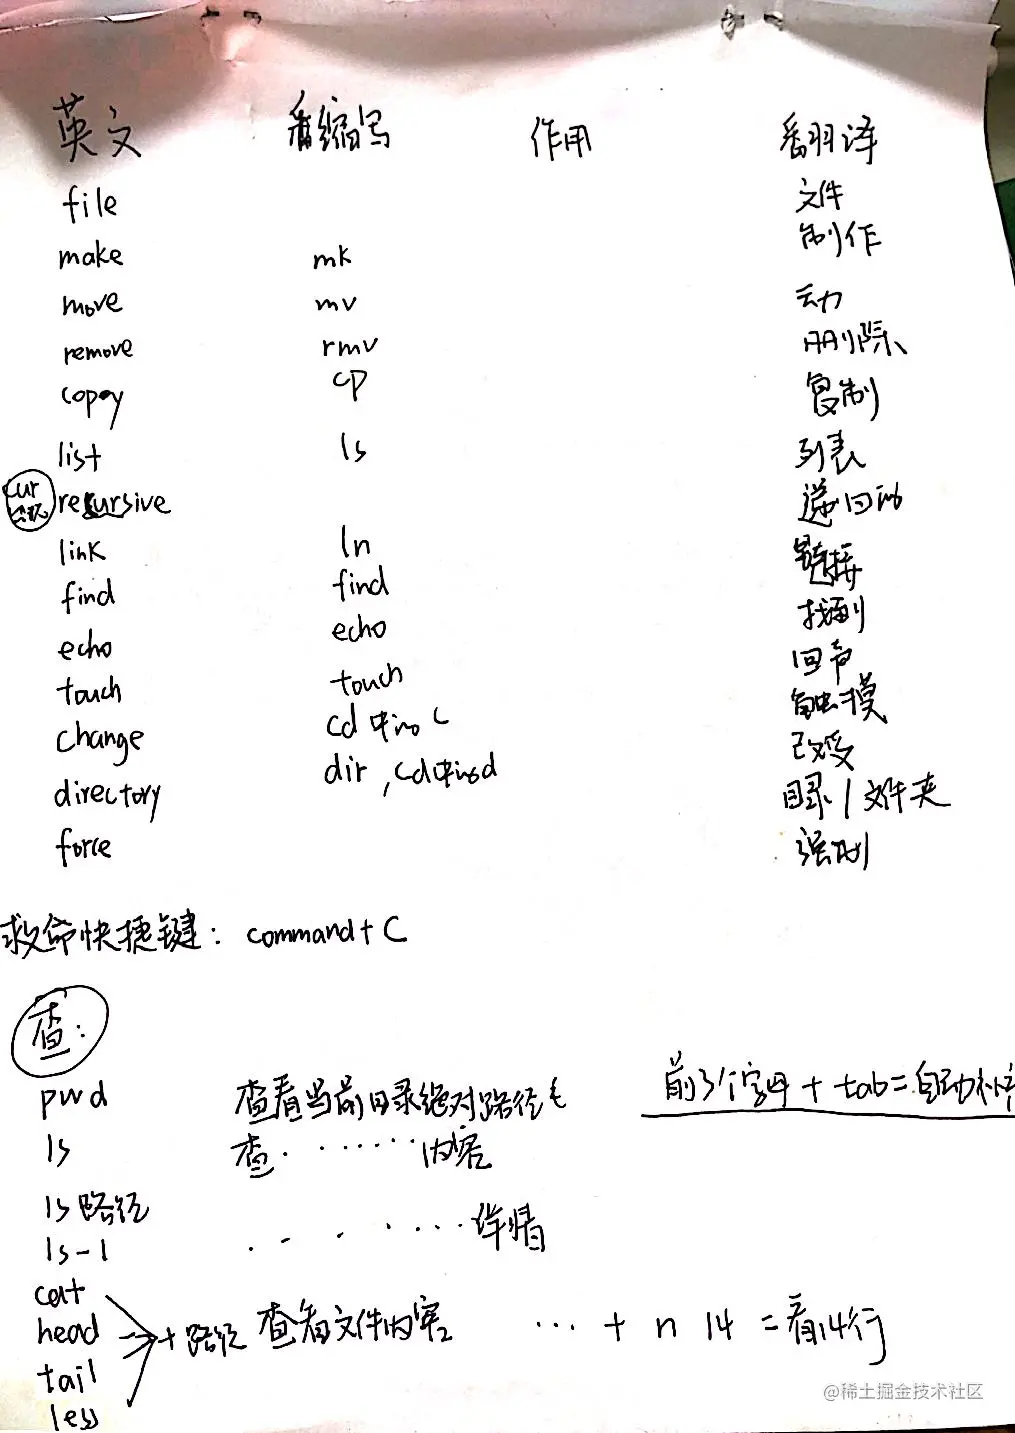 英文 缩写 作用 翻译
file 文件
make mk 制作
move mv 动
remove rmv 删除
copy cp 复制
list ls 列表
cur recursive 递归
link ln 链接
find find 找到
echo echo 回声
touch touch 触摸
change cd中的c 改变
directory dir,cd中的d 目录/文件夹
force 强制
救命快捷键: command+C
查:
pwd 查看当前目录绝对路径 前3个字母+tab=自动补
ls 查······内容
ls路径
ls-l ······详情
cat
head +路径 查看文件内容 ···+n 14=看14行
tail
less
@稀土掘金技术社区